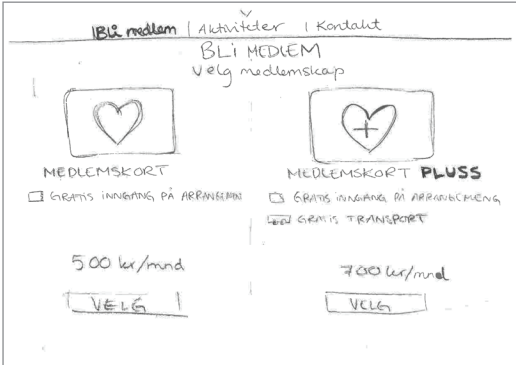 Bli medlem | Aktiviteter | Kontakt
BLI MEDLEM
Velg medlemskap
MEDLEMSKORT
GRATIS INNGANG PÅ ARRANGEMEN
500 kr/mnd
VELG
MEDLEMSKORT PLUSS
GRATIS INNGANG PÅ ARRANGEMENG
GRATIS TRANSPORT
700 kr/mnd
VELG